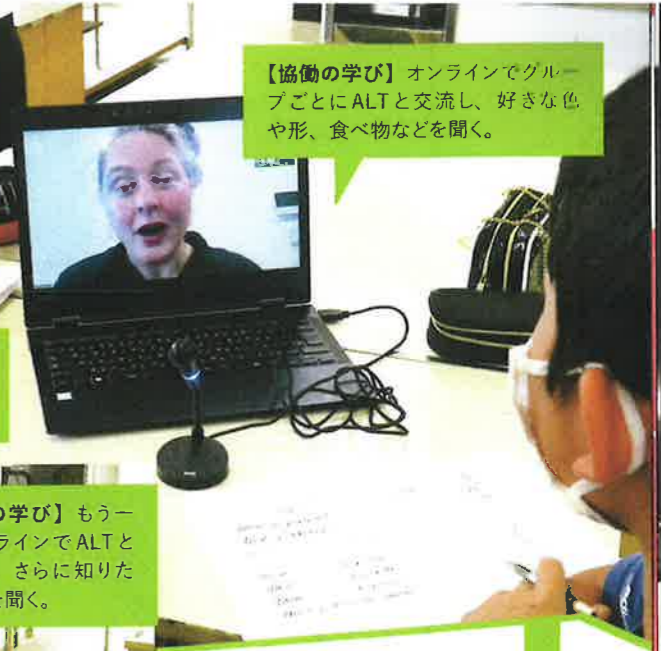 【協働の学び】オンラインでグルー
プごとにALTと交流し、好きな色
や形、食べ物などを聞く。
の学び】もう一
ラインでALTと
さらに知りた
を聞く。